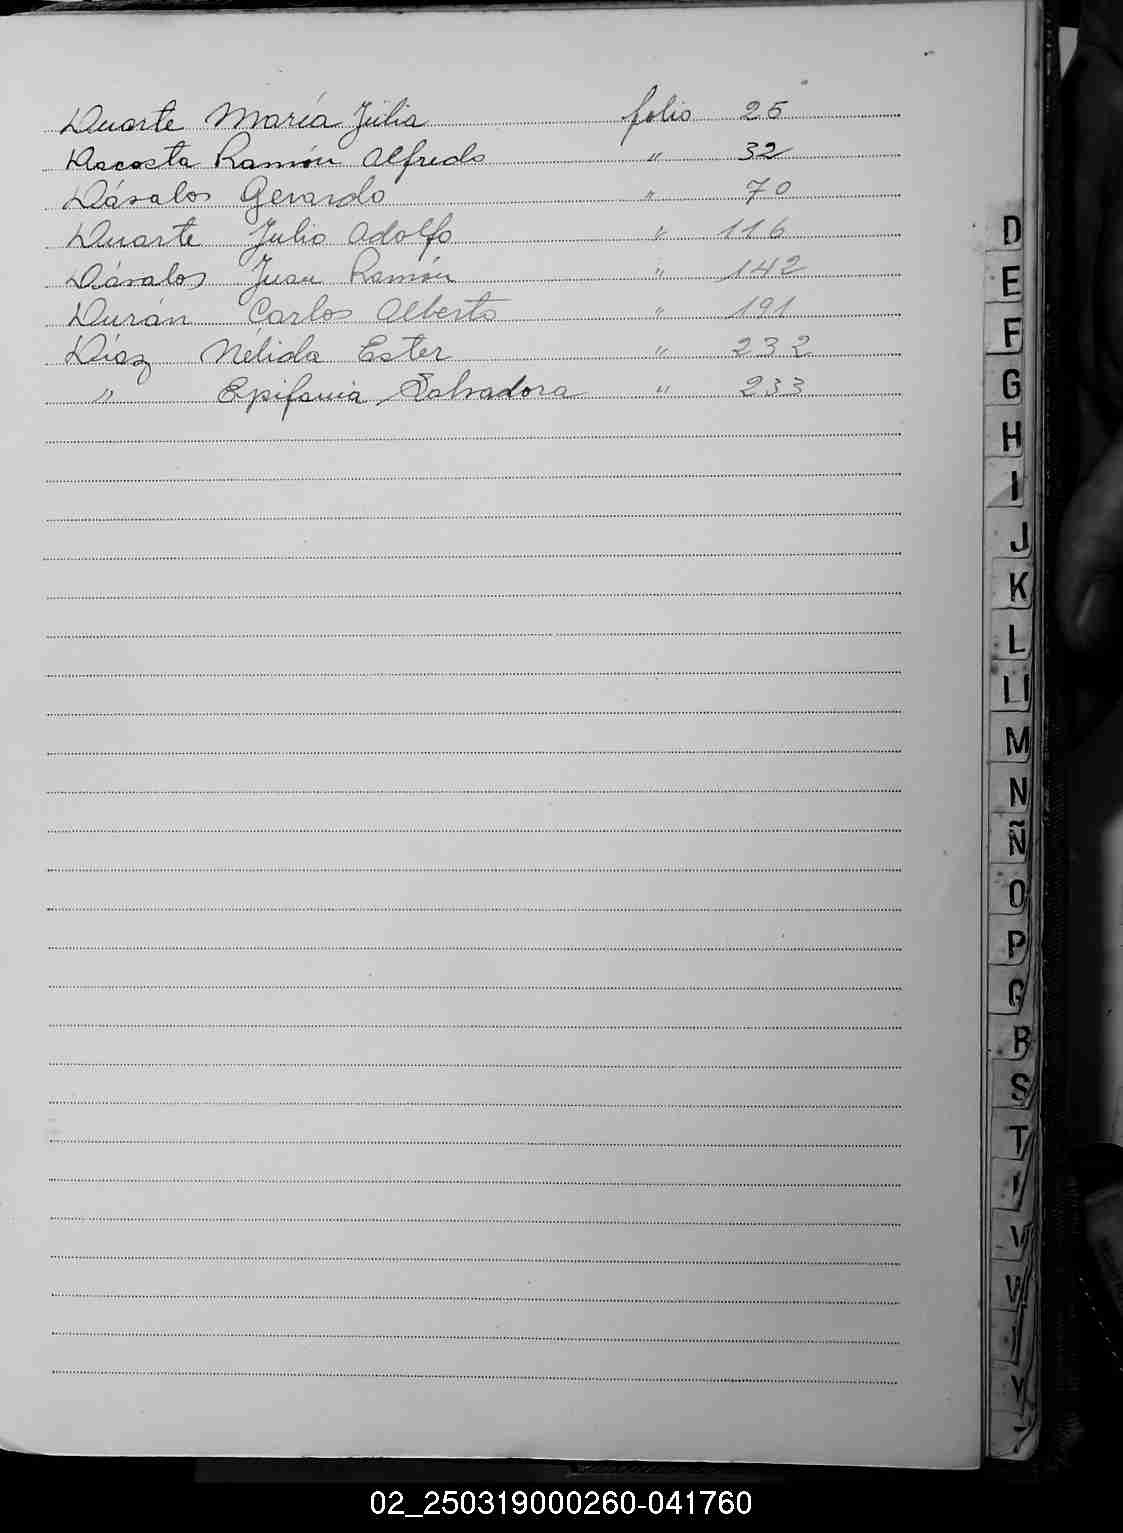 Duarte María Julia folio 25
Dacosta Ramón Alfredo " 32
Dávalos Gerardo " 70
Duarte Julio Adolfo " 116
Dávalos Juan Ramón " 142
Durán Carlos Alberto " 191
Díaz Nélida Ester " 232
" Epifania Salvadora " 233
D
E
F
G
H
I
J
K
L
Ll
M
N
Ñ
O
P
Q
R
S
T
V
W
Y
02_250319000260-041760